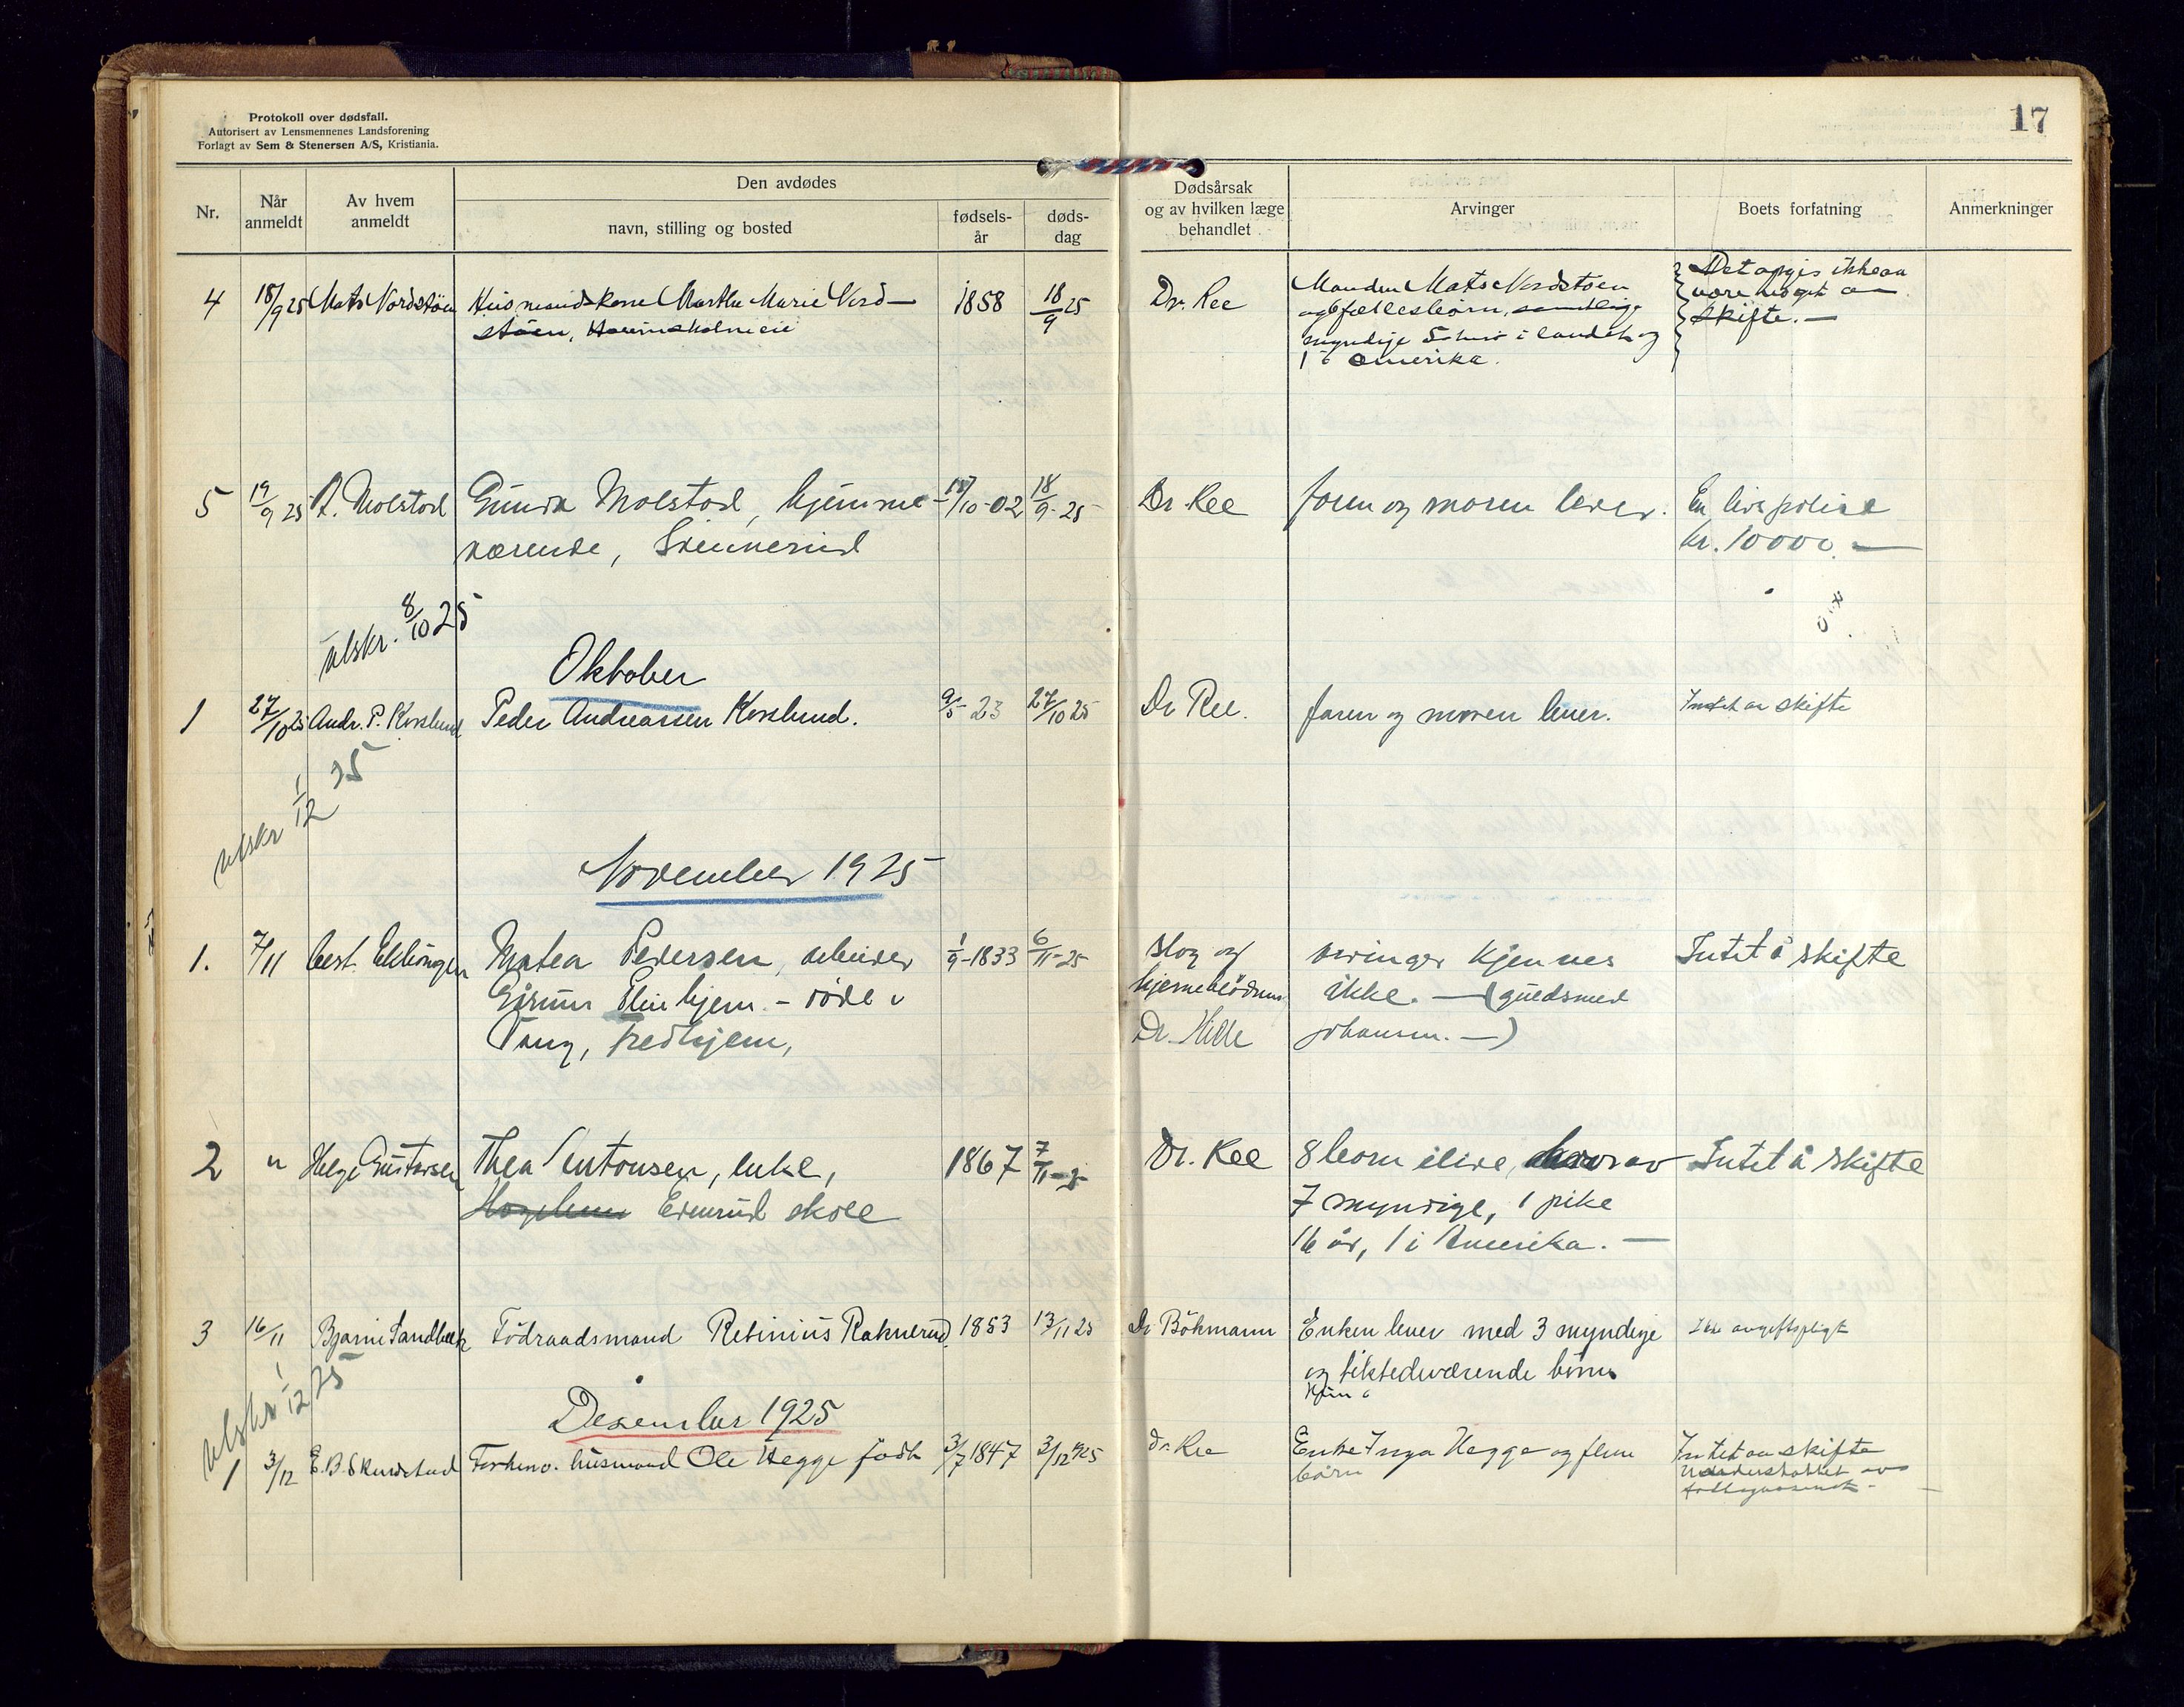 Protokoll over dødsfall.
Autorisert av Lensmennenes Landsforening
Forlagt av Sem & Stenersen A/S, Kristiania.
17
Nr.
Når anmeldt
Av hvem anmeldt
Den avdødes
navn, stilling og bosted
fødsels-år
døds-dag
Dødsårsak og av hvilken læge behandlet
Arvinger
Boets forfatning
Anmerkninger
4 18/9 25 Mats Nordstøen Husmandskone Marthe Marie Nord- 1858 18/9 25 Dr. Ree Manden Mats Nordstøen Det opgis ikke aa
støen, og 6 fællesbørn, samtlige være noget aa
myndige 5 hvis i landet og skifte. —
1 i Amerika.
5 19/9 25 A. Molstad Gunda Molstad, hjemme- /10-02 18/9-25 Dr. Ree faren og moren lever. En livspolise
værende, kr. 10000. —
utskr. 8/10 25
Oktober
1 27/10 25 Andr. P. Korslund Peder Andreassen Korslund. 9/5-23 27/10 25 Dr Ree. faren og moren lever. Intet aa skifte
utskr 1/12 25
November 1925
1. 7/11 best. Ellingsen Matea Pedersen, 1/9-1833 6/11-25 slag og arvinger kjennes Intet å skifte
hjem. - døde i hjerneblødning ikke. — (guldsmed
Vang, fredhjem, Dr. Hille Johansen. —)
2 " Helge Gustavsen Thea Antonsen, enke, 1867 7/11-25 Dr. Ree 8 barn ilive, hvorav Intet å skifte
skole 7 myndige, 1 pike
16 år, 1 i Amerika. —
3 16/11 Bjarne Sandbæk Födraadsmand Retinius Raknerud. 1853 13/11 25 Dr Bökmann Enken lever med 3 myndige Ikke avgiftspligt
og tilstedeværende börn
utskr 1/12 25
Desember 1925
1 3/12 E.B. Skurdstad Forhenv. husmand Ole Hegge födt 3/7 1847 3/12 1925 dr. Ree Enke Inga Hegge og flere Intet aa skifte
börn understøttet av